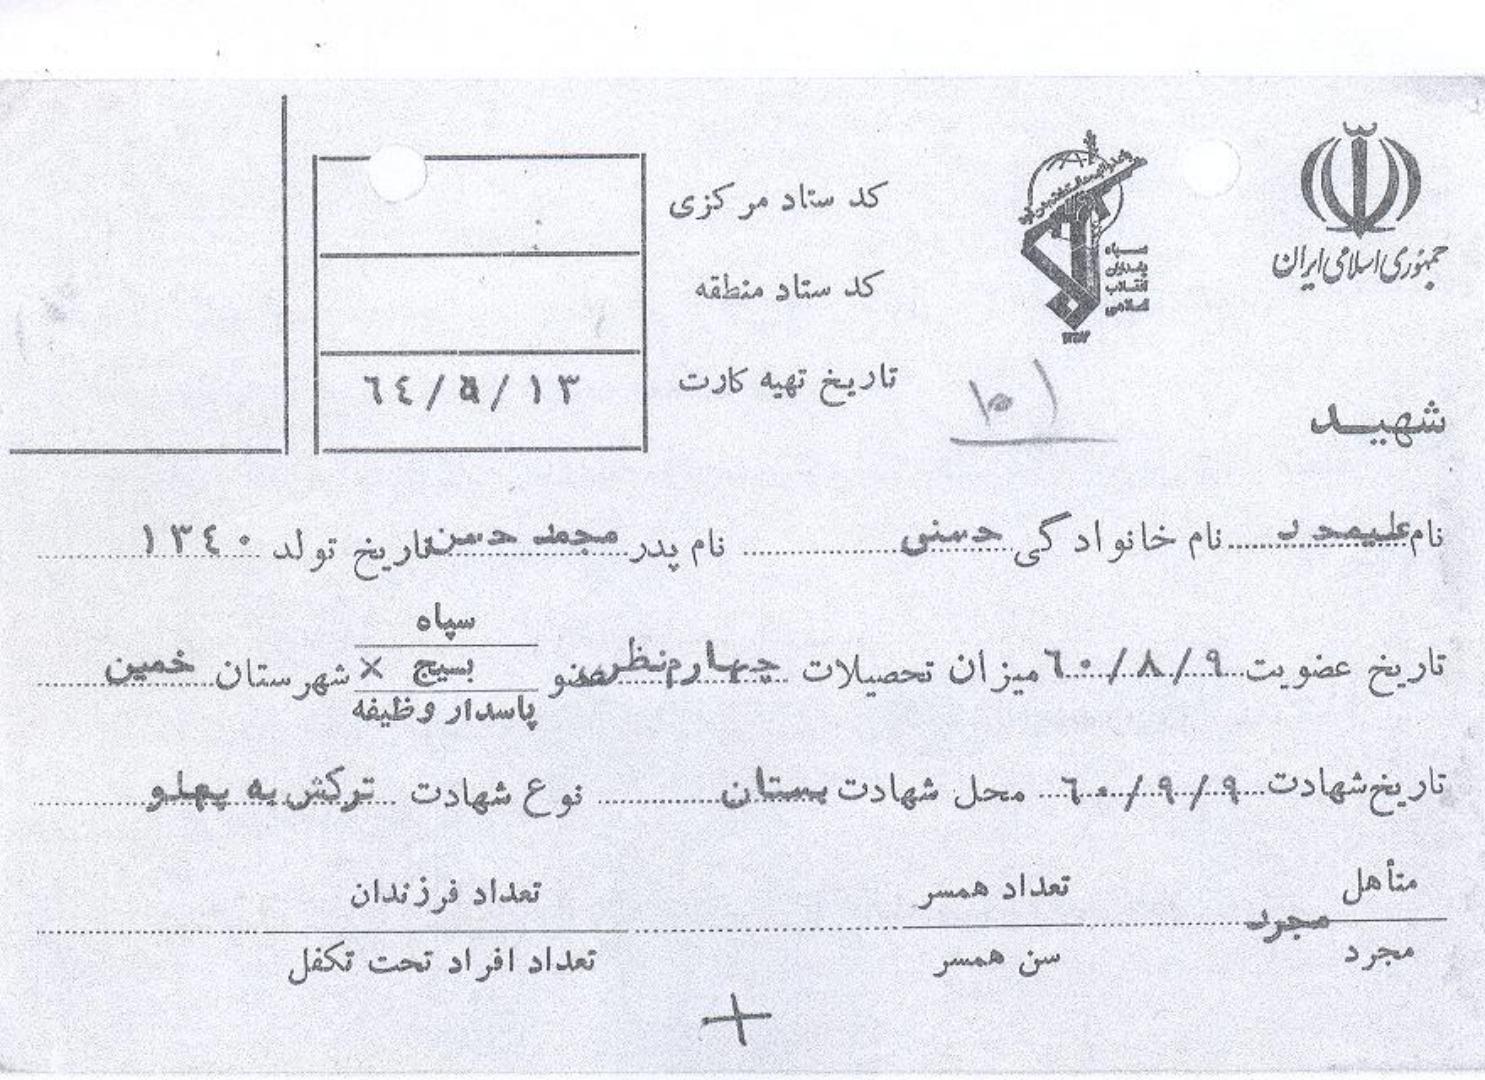 جمهوری اسلامی ایران
سپاه
پاسداران
انقلاب
اسلامی
کد ستاد مرکزی
کد ستاد منطقه
تاریخ تهیه کارت ٦٤/٥/١٣
شهید
نام علیمحمد نام خانوادگی حسنی نام پدر محمد حسن تاریخ تولد ١٣٤٠
تاریخ عضویت ٦٠/٨/٩ میزان تحصیلات چهارم نظری عضو سپاه
بسیج ×
پاسدار وظیفه
شهرستان خمین
تاریخ شهادت ٦٠/٩/٩ محل شهادت بستان نوع شهادت ترکش به پهلو
متأهل تعداد همسر تعداد فرزندان
مجرد
مجرد سن همسر تعداد افراد تحت تکفل